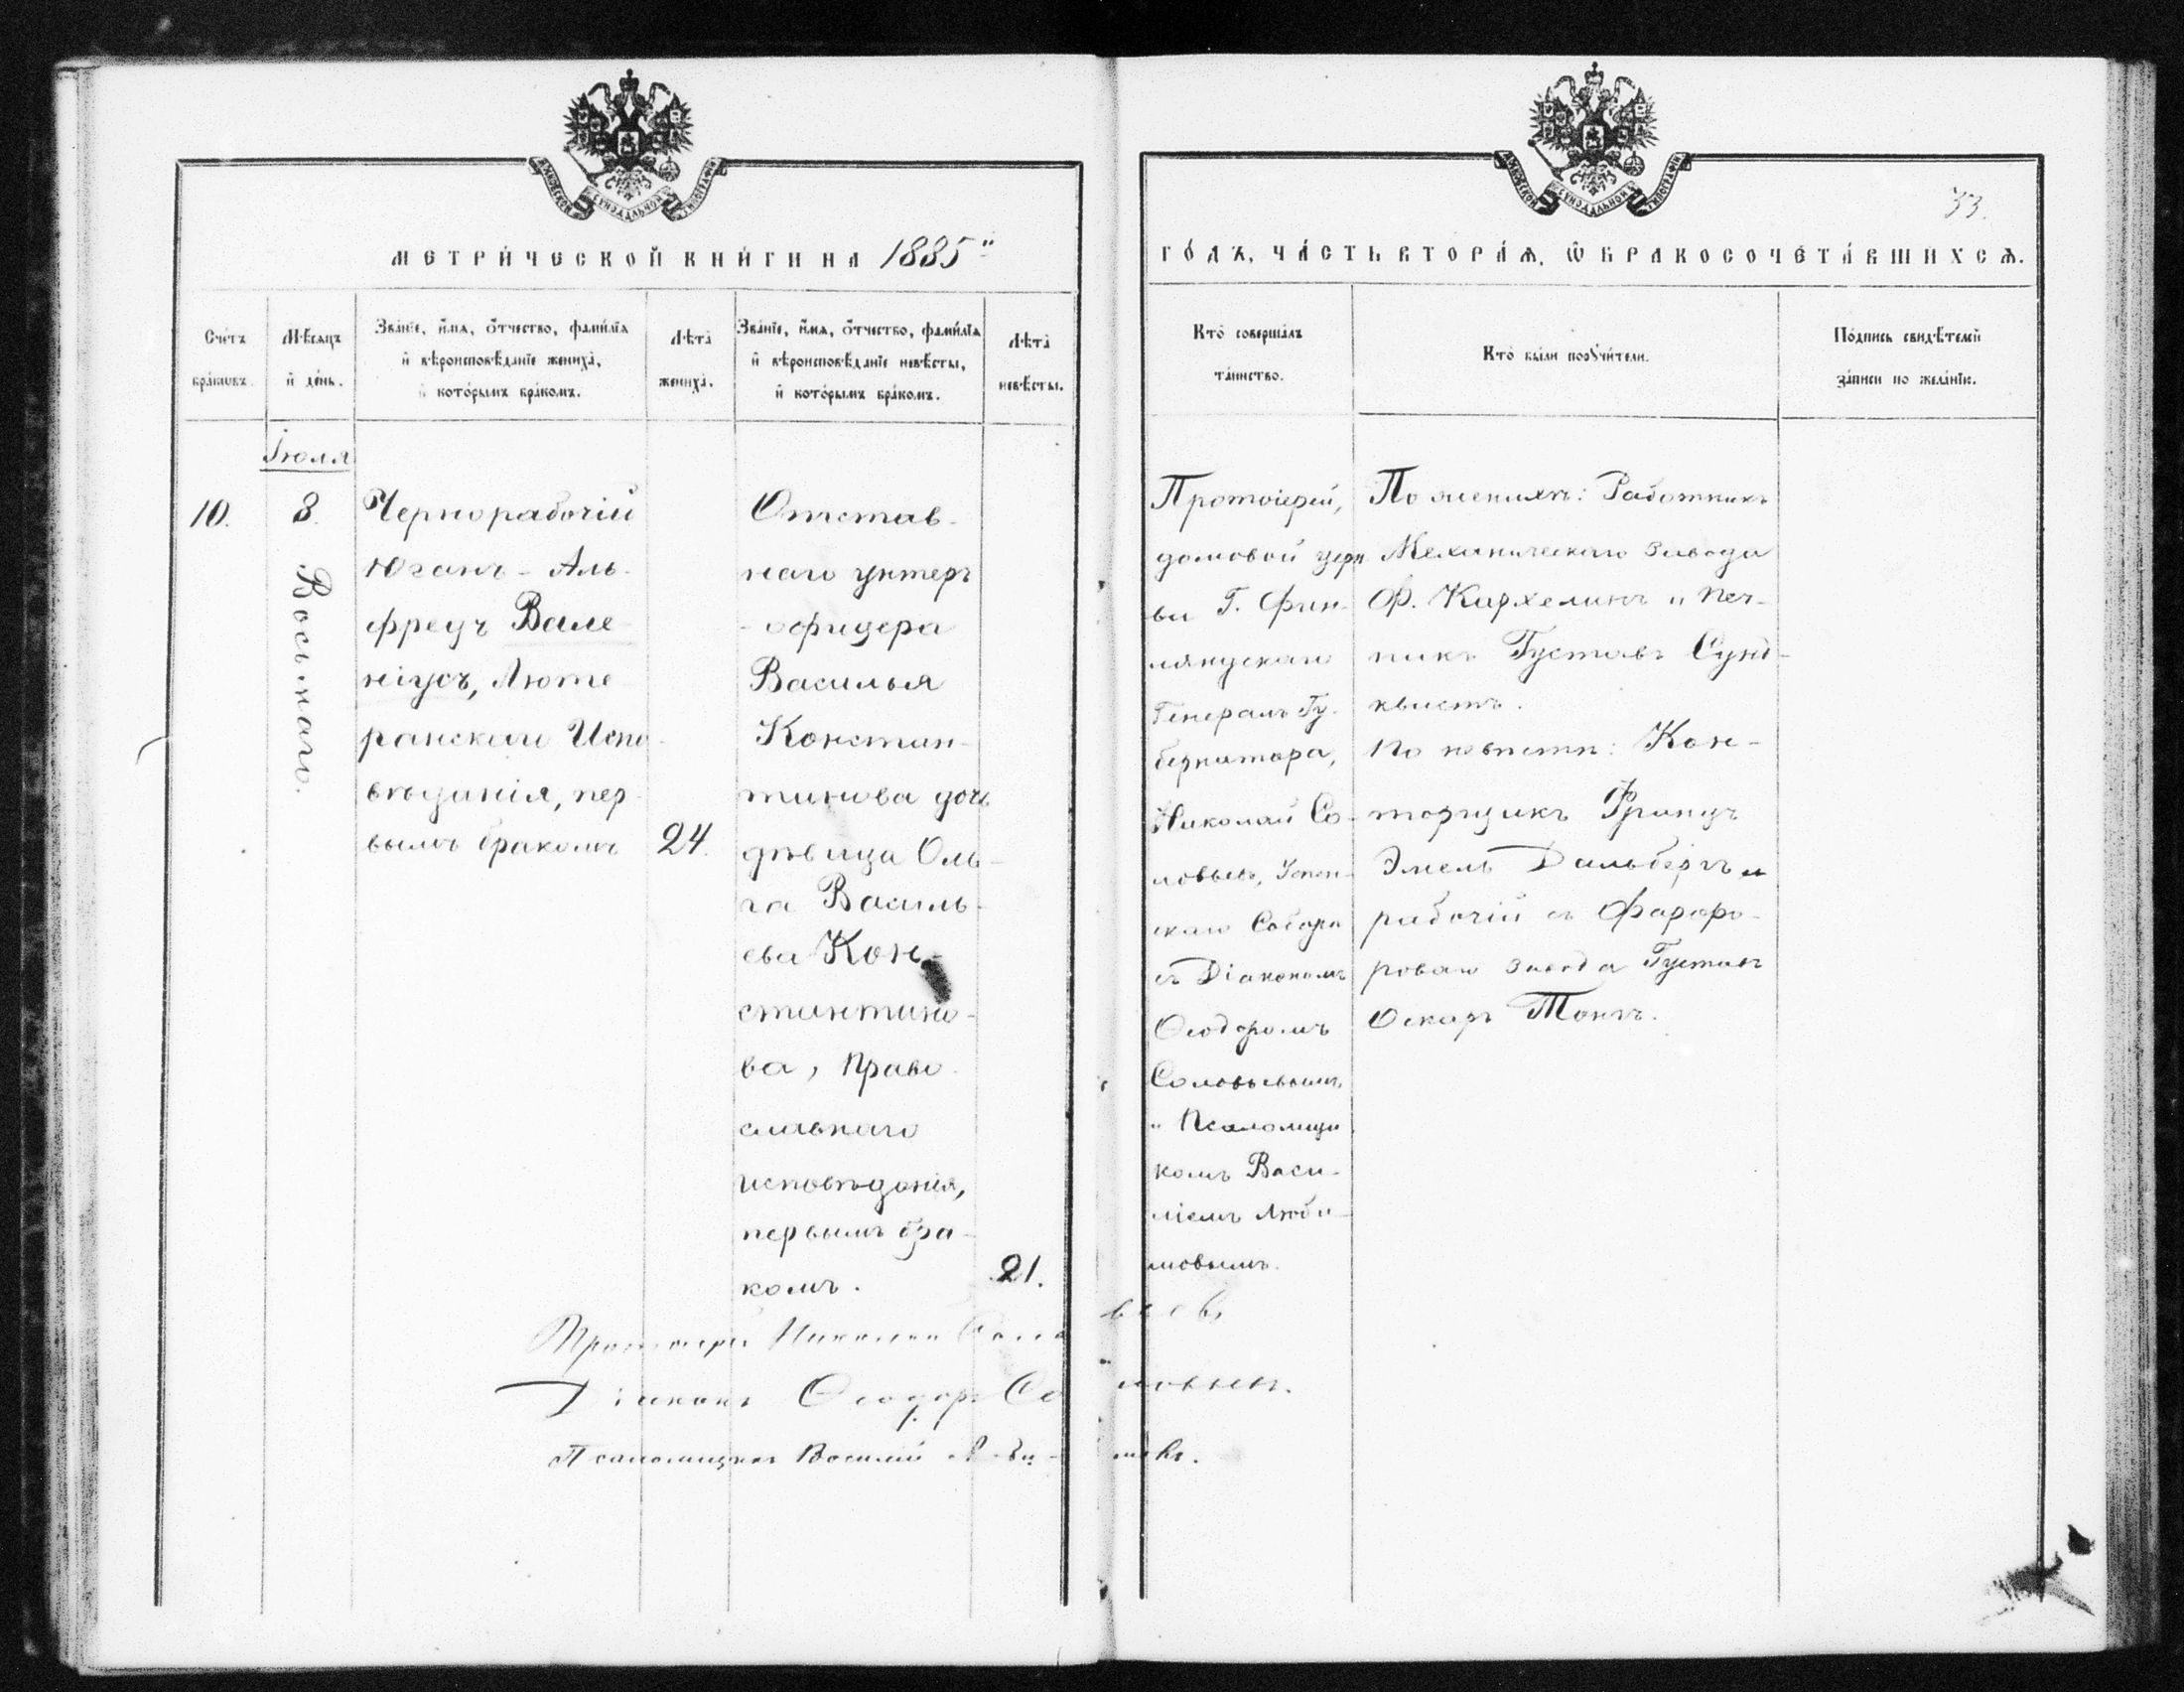 МЕТРИ́ЧЕСКОЙ КНИ́ГИ НА 1885
ГО́ДЪ, ЧА́СТЬ ВТОРА́Ѧ, Ѿ БРАКОСОЧЕТА́ВШИХСѦ.
33.
Сче́тъ
бра́ковъ.
Мѣ́сяцъ
и҆ де́нь.
Зва́нїе, и҆́мѧ, ѻ҆́тчество, фами́лїѧ
и҆ вѣроисповѣ́данїе жениха́,
и҆ кото́рымъ бра́комъ.
Лѣ́та
жениха́.
Зва́нїе, и҆́мѧ, ѻ҆́тчество, фами́лїѧ
и҆ вѣроисповѣ́данїе невѣ́сты,
и҆ кото́рымъ бра́комъ.
Лѣ́та
невѣ́сты.
Кто́ соверша́лъ
та́инство.
Кто́ бы́ли порꙋчи́тели.
По́дпись свидѣ́телей
за́писи по жела́нїю.
Іюля
10.
8.
Восьмаго.
Чернорабочій
Юганъ-Аль-
фредъ Вале
ніусъ, Люте
ранскаго Испо-
вѣданія, пер-
вымъ бракомъ
24.
Отстав-
наго унтеръ
-офицера
Василья
Констан-
тинова дочь
дѣвица Оль-
га Василь-
ева Кон-
стантино-
ва, Право-
славнаго
исповѣданія,
первымъ бра-
комъ.
21.
Протоіерей,
домовой церк
ви Г. Фин-
ляндскаго
Генералъ Гу-
бернатора,
Николай Со-
ловьевъ, Успен-
скаго Собора
съ Діакономъ
Ѳеодоромъ
Соловьевымъ
и Псаломщи
комъ Васи-
ліемъ Люби-
мовымъ.
По женихѣ: Работникъ
Механическаго завода
Ф. Кархелинъ и печ-
никъ Густавъ Сунд-
квистъ.
По невѣстѣ: Кон-
торщикъ Францъ
Эмель Дальбергъ и
рабочій съ Фарфо-
роваго завода Густавъ
Оскаръ Тонгъ.
Протоіерей Николай Соловьевъ
Діаконъ Ѳеодоръ Соловьевъ.
Псаломщикъ Василій Любимовъ.